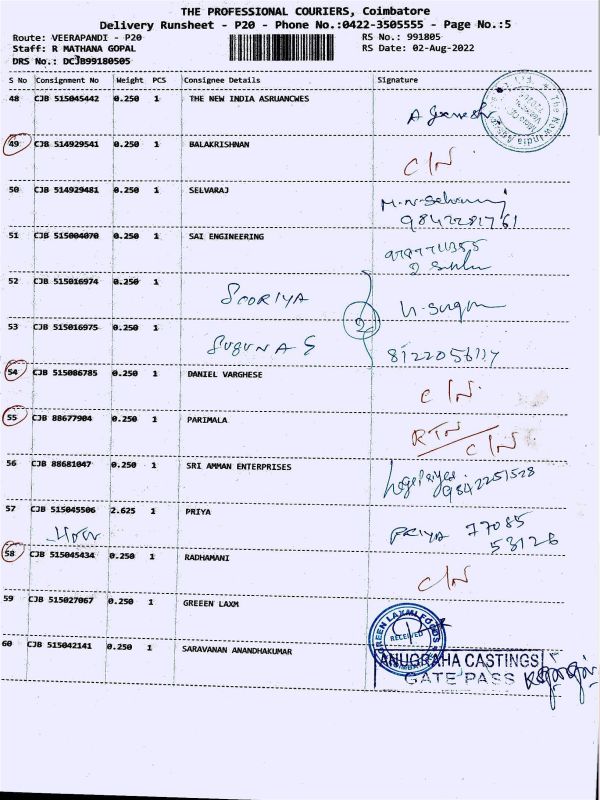 THE PROFESSIONAL COURIERS, Coimbatore
Delivery Runsheet - P20 - Phone No.:0422-3505555 - Page No.:5
Route: VEERAPANDI - P20 RS No.: 991805
Staff: R MATHANA GOPAL RS Date: 02-Aug-2022
DRS No.: DCJB99180505
S No Consignment No Weight PCS Consignee Details Signature
48 CJB 515045442 0.250 1 THE NEW INDIA ASRUANCWES
49 CJB 514929541 0.250 1 BALAKRISHNAN C/N
50 CJB 514929481 0.250 1 SELVARAJ M-N-Selvaraj
9842281761
51 CJB 515004070 0.250 1 SAI ENGINEERING
52 CJB 515016974 0.250 1 SOORIYA 2
53 CJB 515016975 0.250 1 SUGUNA G 8122056117
54 CJB 515086785 0.250 1 DANIEL VARGHESE C/N
55 CJB 88677904 0.250 1 PARIMALA RTN C/N
56 CJB 88681047 0.250 1 SRI AMMAN ENTERPRISES 9842251528
57 CJB 515045506 2.625 1 PRIYA PRIYA 77085
53126
58 CJB 515045434 0.250 1 RADHAMANI C/N
59 CJB 515027067 0.250 1 GREEEN LAXM
GREEN LAXMI FOODS
RECEIVED
60 CJB 515042141 0.250 1 SARAVANAN ANANDHAKUMAR
ANUGRAHA CASTINGS
GATE PASS